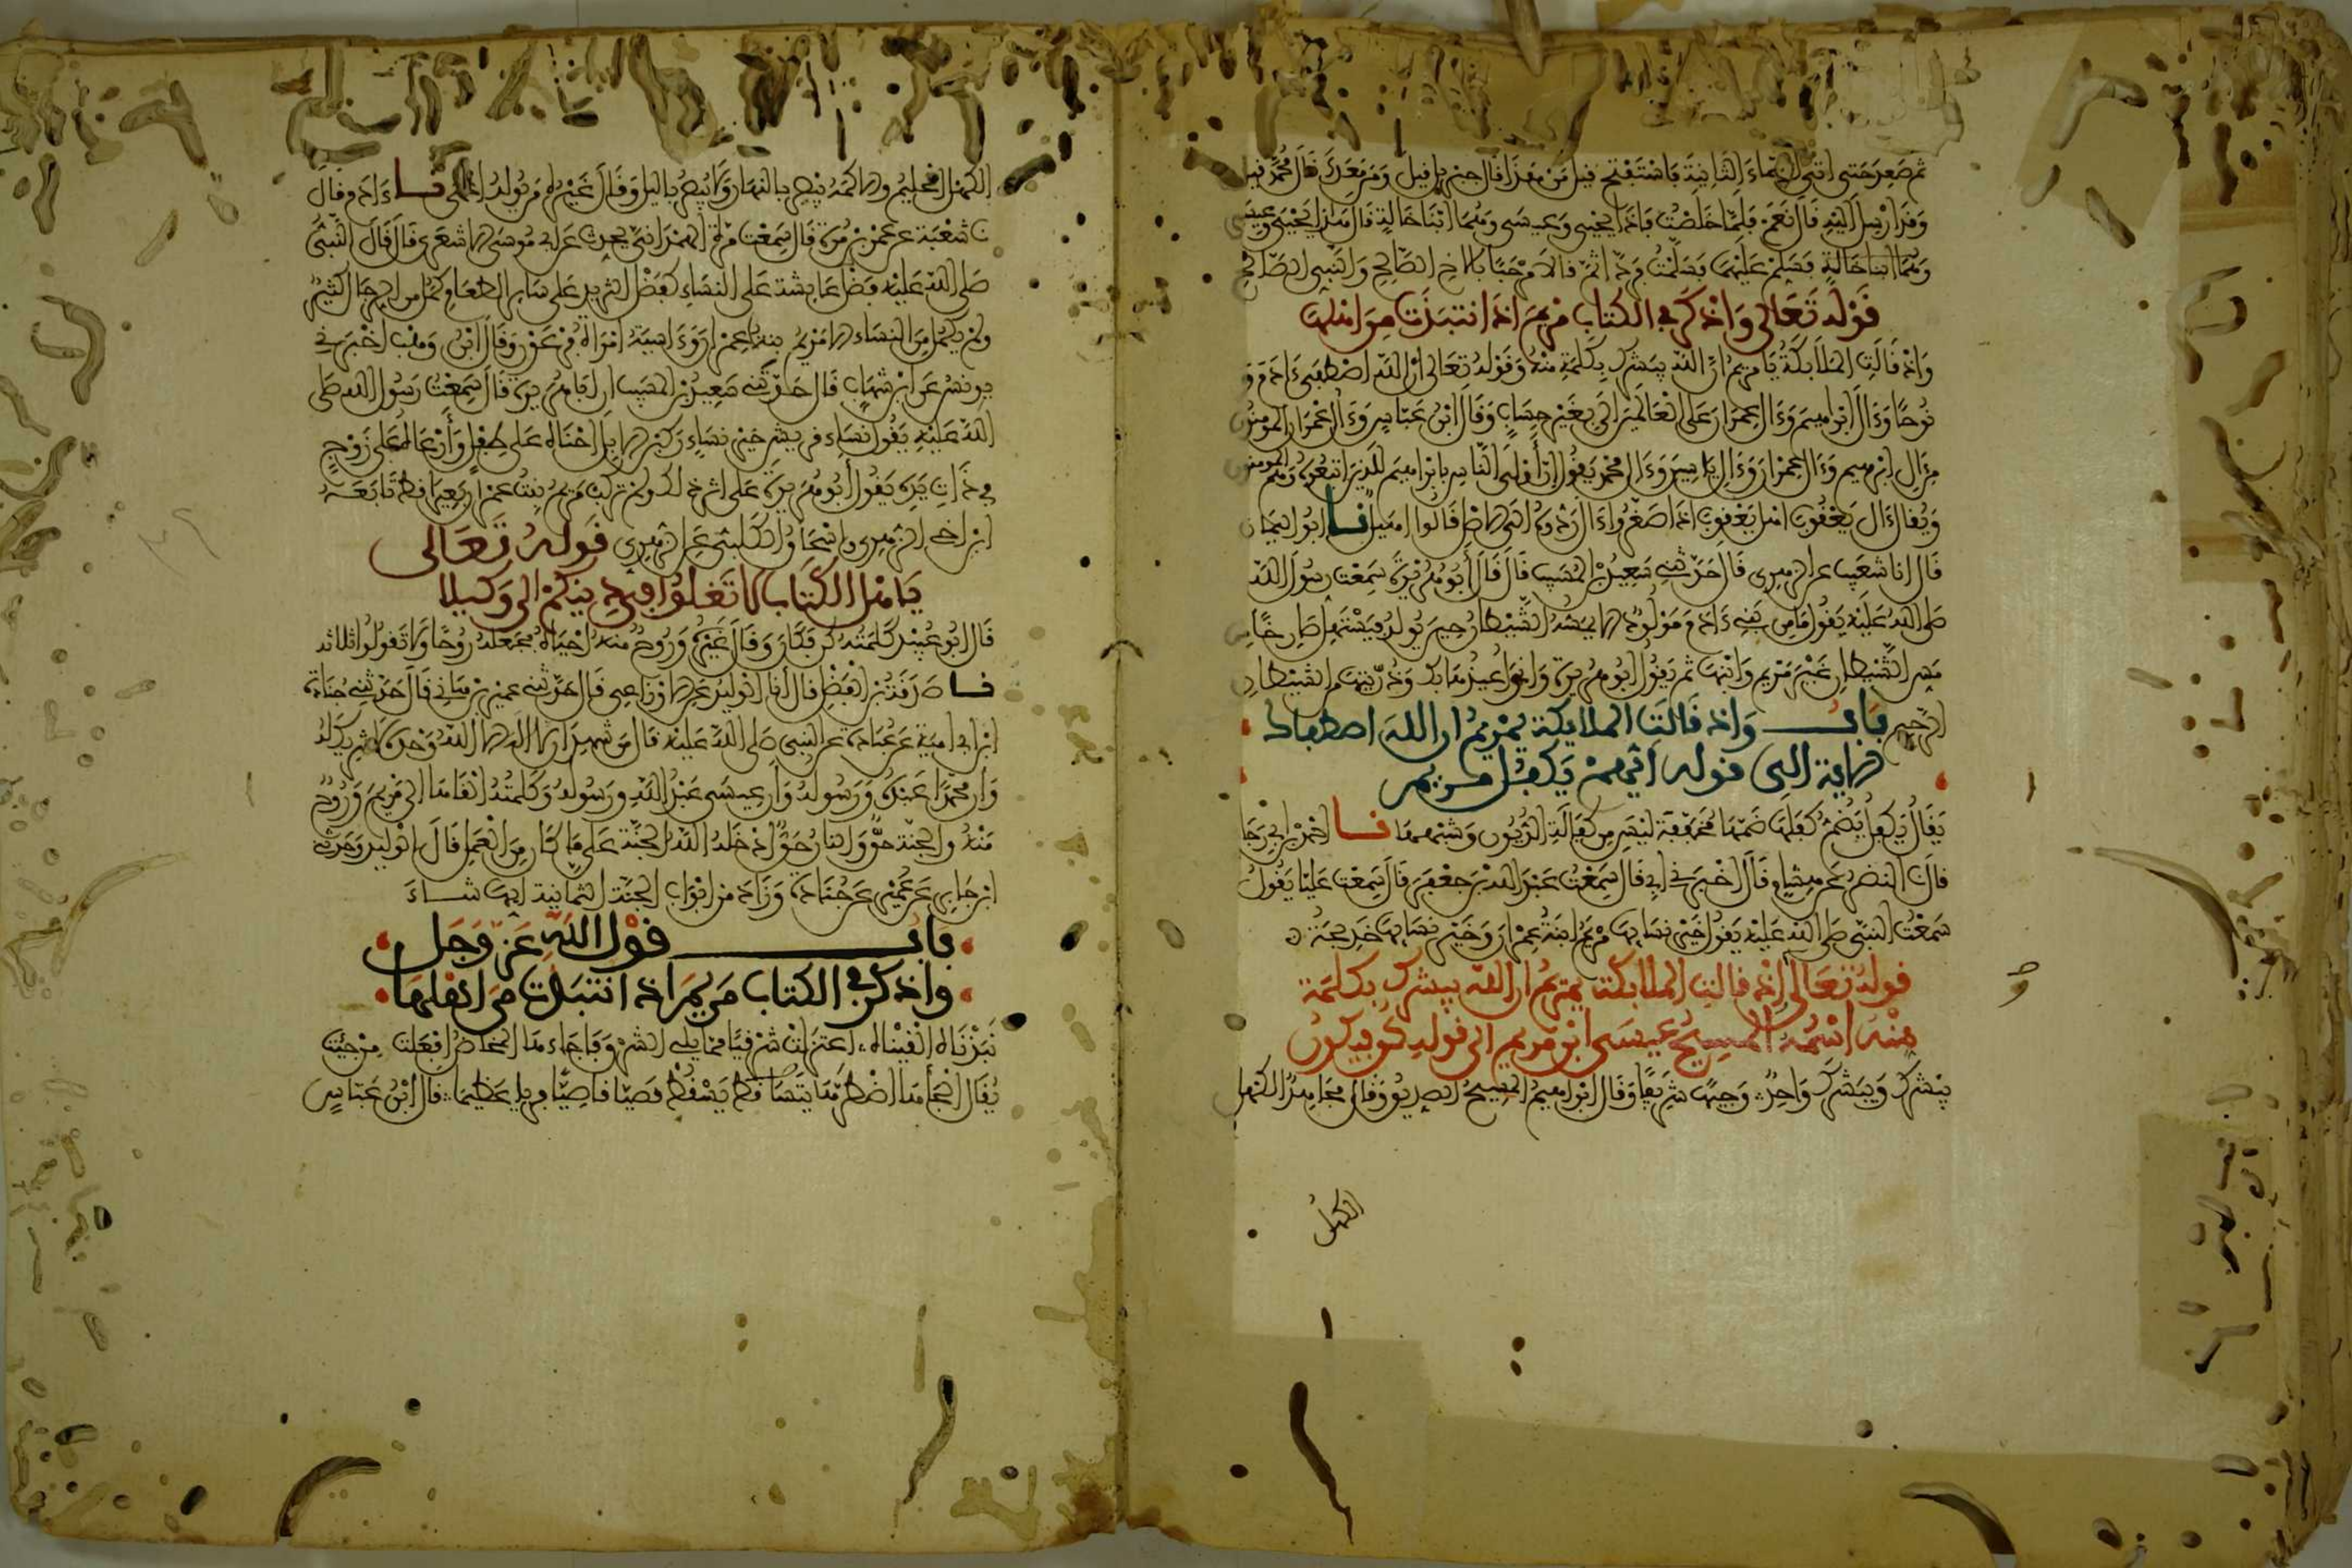 ثم صعد حتى اتى السماء الثانية فاستفتح قيل من هذا قال جبريل قيل ومن معك قال محمد قيل
وقد ارسل اليه قال نعم فلما خلصت فاذا يحيى وعيسى وهما ابنا خالة قال هذا يحيى وعيسى
وهما ابنا خالة فسلم عليهما فسلمت فردا ثم قالا مرحبا بالاخ الصالح والنبي الصالح
قوله تعالى واذكر في الكتاب مريم اذ انتبذت من اهلها
واذ قالت الملائكة يا مريم ان الله يبشرك بكلمة منه وقوله تعالى ان الله اصطفى ءادم و
نوحا وءال ابراهيم وءال عمران على العالمين الى بغير حساب وقال ابن عباس وءال عمران المومنون
من ءال ابرهيم وءال عمران وءال ياسين وءال محمد يقول ان أولى الناس بابراهيم للذين اتبعوه وهم المومنون
ويقال ءال يعقوب اهل يعقوب اذا صغروا ءال ردوه الى الاصل قالوا اهيل نا ابو اليمان
قال انا شعيب عن الزهري قال حدثني سعيد بن المسيب قال قال أبو هريرة سمعت رسول الله
صلى الله عليه يقول ما من بني ءادم مولود الا يمسه الشيطان حين يولد فيستهل صارخا من
مس الشيطان غير مريم وابنها ثم يقول ابو هريرة واني اعيذها بك وذريتها من الشيطان
الرجيم باب واذ قالت الملايكة يمريم ان الله اصطفاك
الاية الى قوله ايهم يكفل مريم
يقال يكفل يضم كفلها ضمها مخففة ليس من كفالة الديون وشبهها نا احمد بن ابي رجا
قال نا النضر عن هشام قال اخبرني ابي قال سمعت عبد الله بن جعفر قال سمعت عليا يقول
سمعت النبي صلى الله عليه يقول خير نسايها مريم ابنة عمران وخير نسايها خديجة
قوله تعالى إذ قالت الملائكة يمريم ان الله يبشرك بكلمة
منه اسمه المسيح عيسى ابن مريم الى قوله كن فيكون
يبشرك ويبشرك واحد وجيها شريفا وقال ابراهيم المسيح الصديق وقال مجاهد الكهل
الكهل
الكهل الحليم والاكمه يبصر بالنهار ولا يبصر بالليل وقال غيره من يولد اعمى نا ءادم قال
نا شعبة عن عمرو بن مرة قال سمعت مرة الهمداني يحدث عن ابي موسى الاشعري قال قال النبي
صلى الله عليه فضل عايشة على النساء كفضل الثريد على ساير الطعام كمل من الرجال كثير
ولم يكمل من النساء الا مريم بنت عمران وءاسية امراة فرعون وقال ابن وهب اخبرني
يونس عن ابن شهاب قال حدثني سعيد بن المسيب ان ابا هريرة قال سمعت رسول الله صلى
الله عليه يقول نساء قريش خير نساء ركبن الابل احناه على طفل وأرعاه على زوج
في ذات يده يقول أبو هريرة على اثر ذلك ولم تركب مريم بنت عمران بعيرا قط تابعه
ابن اخي الزهري واسحاق الكلبي عن الزهري قوله تعالى
يا اهل الكتاب لا تغلوا في دينكم الى وكيلا
قال ابو عبيد كلمته كن فكان وقال غيره وروح منه احياه فجعله روحا ولا تقولوا ثلاثة
نا صدقة بن الفضل قال أنا الوليد عن الاوزاعي قال حدثني عمير بن هاني قال حدثني جنادة
ابن ابي امية عن عبادة عن النبي صلى الله عليه قال من شهد ان لا اله الا الله وحده لا شريك له
وان محمدا عبده ورسوله وأن عيسى عبد الله ورسوله وكلمته القاها الى مريم وروح
منه والجنة حق والنار حق ادخله الله الجنة على ما كان من العمل قال الوليد وحدثني
ابن جابر عن عمير عن جنادة وزاد من ابواب الجنة الثمانية ايها شاء
باب قول الله عز وجل
واذكر في الكتاب مريم اذ انتبذت من اهلها
نبذناه القيناه اعتزلت شرقيا مما يلي الشرق فاجاءها المخاض افعلت من جيت
يقال الجأها اضطرها تساقط يسقط قصيا قاصيا فريا عظيما قال ابن عباس